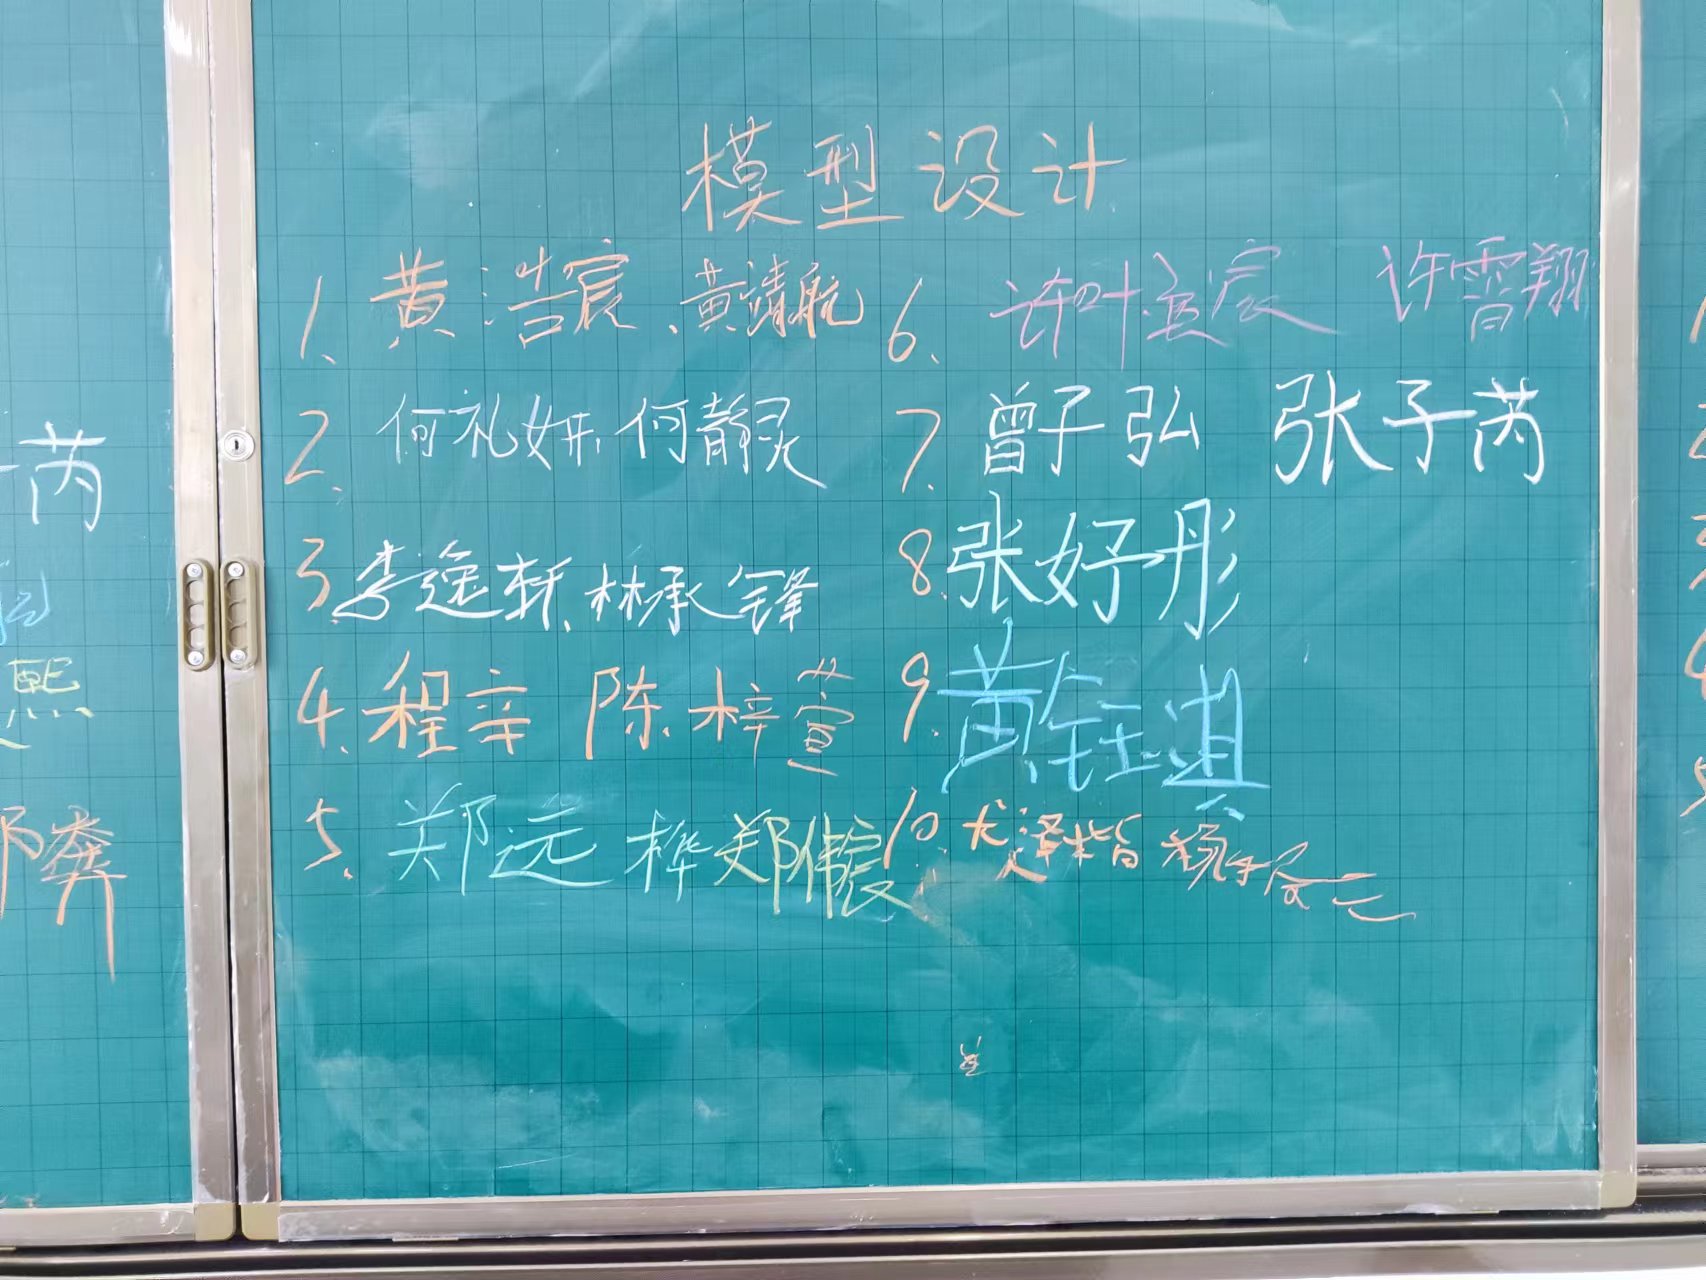 模型设计
1、黄浩宸、黄靖航
2.何礼妍、何静灵
3.李逸轩、林承锋
4、程辛 陈梓萱
5、郑远桦 郑伟宸
6、许叶宸 许霄翔
7.曾子弘 张子芮
8.张好彤
9.黄钰淇
10.尤泽楷
芮
熙